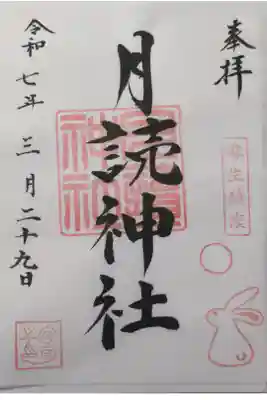 奉拝
月読神社
令和七年三月二十九日